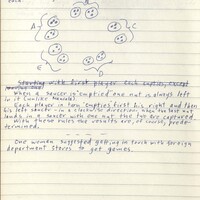 B
A
C
E
D
Starting with first player each empties, except
When a saucer is emptied one nut is always left
in it (unlike Mancala).
Each player in turn empties first his right and then
his left saucer in a clockwise direction; when the last nut
lands in a saucer with one nut that two are captured.
With these rules the results are, of course, prede-
termined.
One women suggested getting in touch with foreign
department stores to get games.